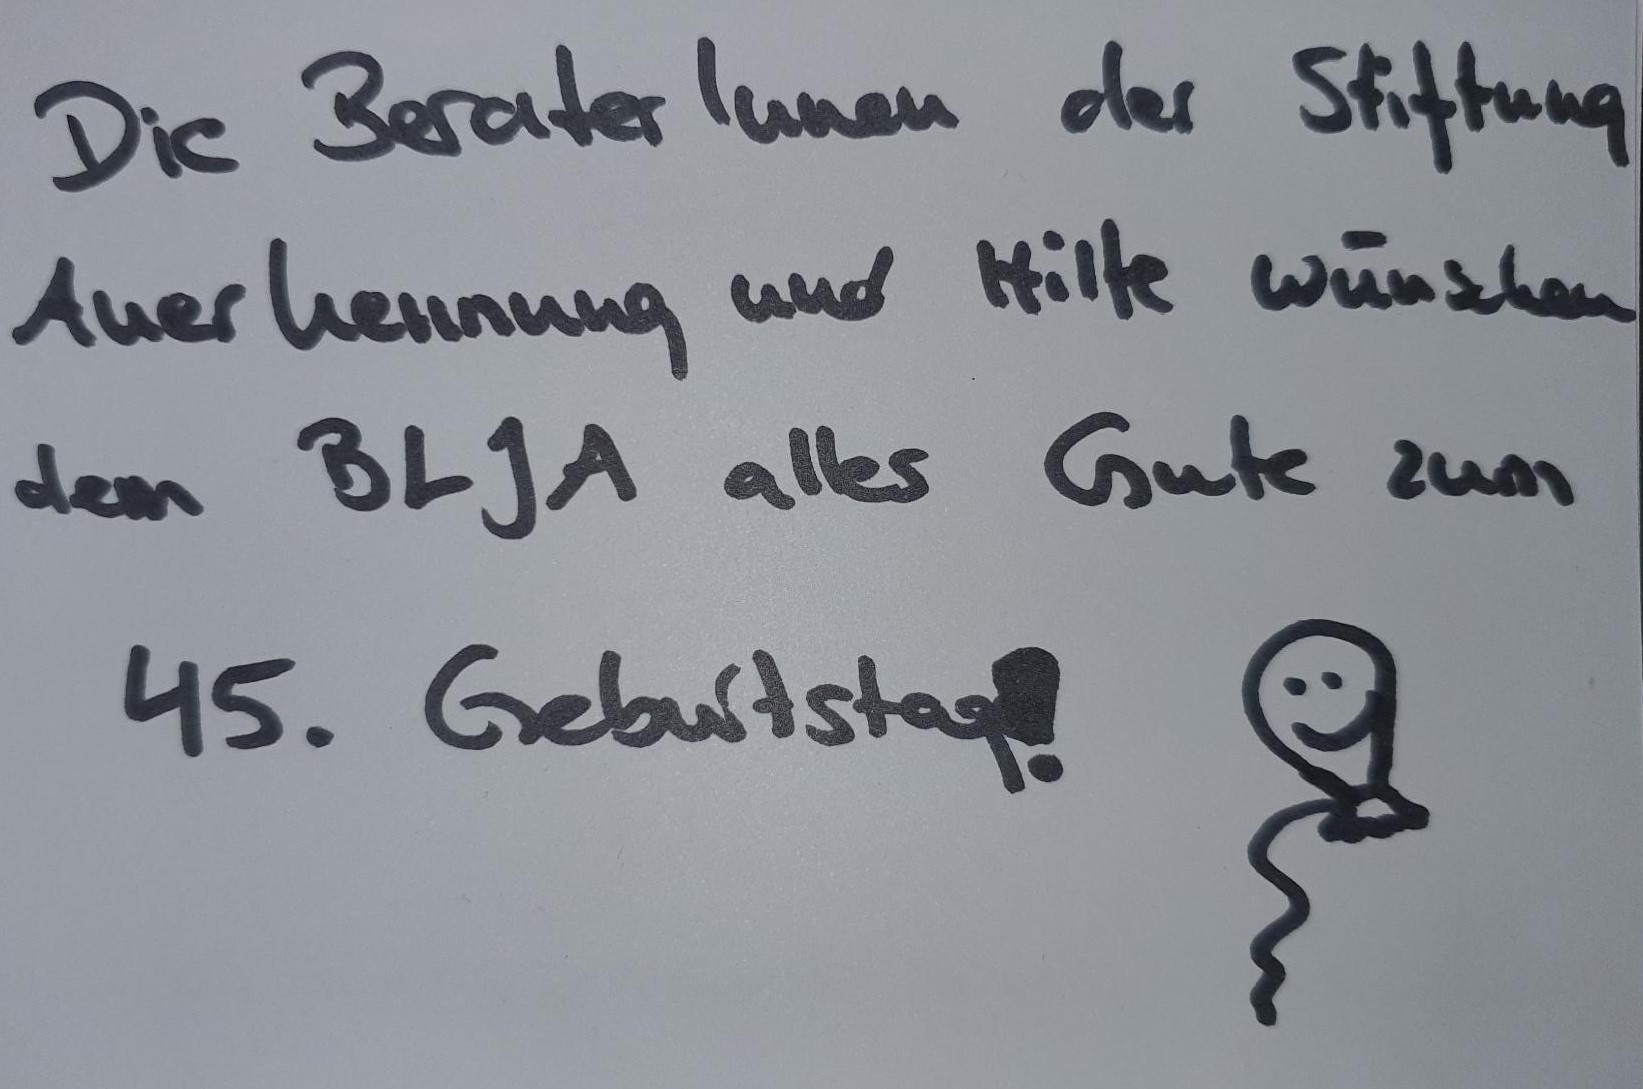 Die BeraterInnen der Stiftung
Anerkennung und Hilfe wünschen
dem BLJA alles Gute zum
45. Geburtstag!